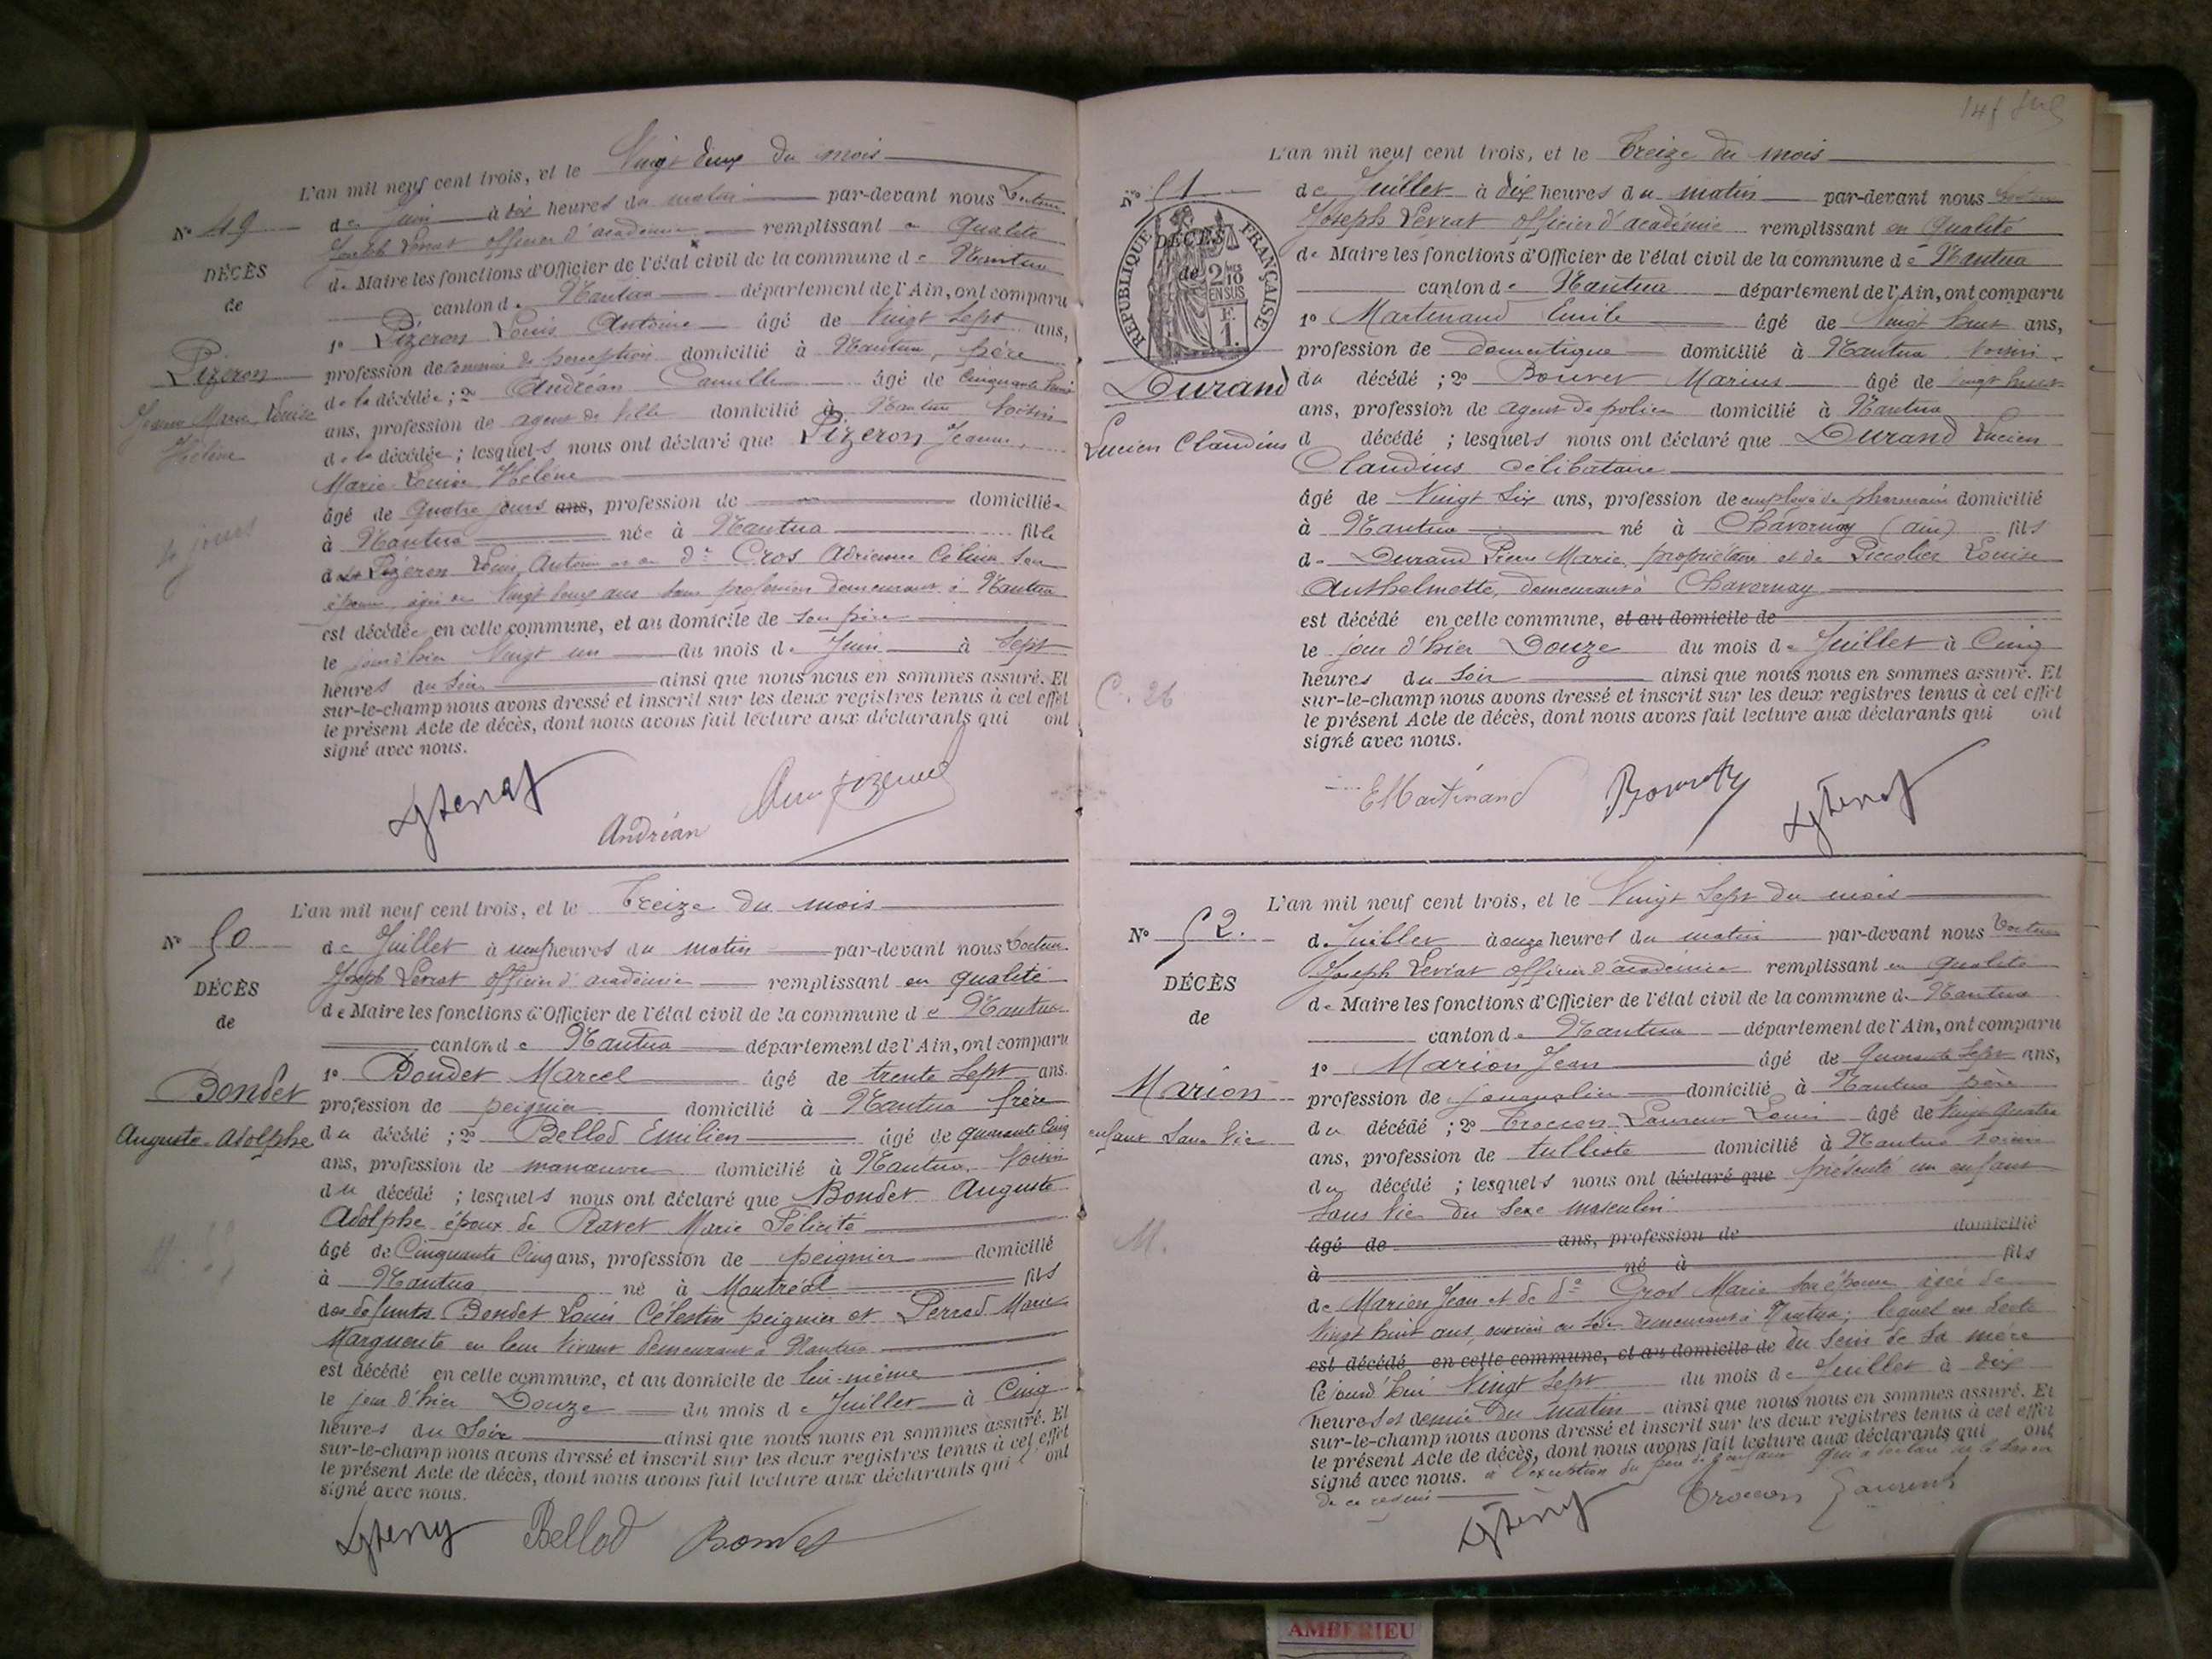 L'an mil neuf cent trois, et le Vingt deux du mois
de Juin à dix heures du matin par-devant nous Docteur
Joseph Levrat officier d'académie remplissant en qualité
de Maire les fonctions d'Officier de l'état civil de la commune de Nantua
canton de Nantua département de l'Ain, ont comparu
1º Pizeron Louis Antoine âgé de Vingt Sept ans,
profession de commis de perception domicilié à Nantua, père
de la décédée ; 2º Andréan Camille âgé de Cinquante
ans, profession de agent de Ville domicilié à Nantua Voisin
de la décédée ; lesquels nous ont déclaré que Pizeron Jeanne,
Marie Louise Hélène
âgé de Quatre jours ans, profession de domiciliée
à Nantua née à Nantua fille
de Pizeron Louis Antoine et de de Cros Adrienne Célina Son
épouse, âgée de Vingt ans sans profession demeurant à Nantua
est décédée en cette commune, et au domicile de son père
le jour d'hier Vingt un du mois de Juin à Sept
heures du Soir ainsi que nous nous en sommes assuré. Et
sur-le-champ nous avons dressé et inscrit sur les deux registres tenus à cet effet
le présent Acte de décès, dont nous avons fait lecture aux déclarants qui ont
signé avec nous.
Nº 49
DÉCÈS
de
Pizeron
Jeanne Marie Louise
Hélène
4 jours
Andréan
L'an mil neuf cent trois, et le Treize du mois
de Juillet à neuf heures du matin par-devant nous Docteur
Joseph Levrat officier d'académie remplissant en qualité
de Maire les fonctions d'Officier de l'état civil de la commune de Nantua
canton de Nantua département de l'Ain, ont comparu
1º Bondet Marcel âgé de trente Sept ans.
profession de peignier domicilié à Nantua frère
du décédé ; 2º Bellod Emilien âgé de quarante Cinq
ans, profession de manœuvre domicilié à Nantua, Voisin
du décédé ; lesquels nous ont déclaré que Bondet Auguste
Adolphe époux de Ravet Marie Félicité
âgé de Cinquante Cinq ans, profession de peignier domicilié
à Nantua né à Montréal fils
des defunts Bondet Louis Célestin peignier et Perrod Marie
Marguerite en leur Vivant demeurant à Nantua
est décédé en cette commune, et au domicile de lui-même
le jour d'hier Douze du mois de Juillet à Cinq
heures du Soir ainsi que nous nous en sommes assuré. Et
sur-le-champ nous avons dressé et inscrit sur les deux registres tenus à cet effet
le présent Acte de décès, dont nous avons fait lecture aux déclarants qui ont
signé avec nous.
Nº 50
DÉCÈS
de
Bondet
Auguste-Adolphe
Bellod Bondet
L'an mil neuf cent trois, et le Treize du mois
de Juillet à dix heures du matin par-devant nous Docteur
Joseph Levrat officier d'académie remplissant en qualité
de Maire les fonctions d'Officier de l'état civil de la commune de Nantua
canton de Nantua département de l'Ain, ont comparu
1º Martinand Emile âgé de Vingt huit ans,
profession de domestique domicilié à Nantua Voisin
du décédé ; 2º Bouvet Marius âgé de Vingt huit
ans, profession de agent de police domicilié à Nantua
d décédé ; lesquels nous ont déclaré que Durand Lucien
Claudius célibataire
âgé de Vingt Six ans, profession de employé de pharmacie domicilié
à Nantua né à Chavornay (Ain) fils
de Durand Pierre Marie, propriétaire et de Piccolier Louise
Anthelmette, demeurant à Chavornay
est décédé en cette commune, et au domicile de
le jour d'hier Douze du mois de Juillet à Cinq
heures du Soir ainsi que nous nous en sommes assuré. Et
sur-le-champ nous avons dressé et inscrit sur les deux registres tenus à cet effet
le présent Acte de décès, dont nous avons fait lecture aux déclarants qui ont
signé avec nous.
Nº 51
DÉCÈS
de
RÉPUBLIQUE FRANÇAISE
2 10
EN SUS
F.
1.
Durand
Lucien Claudius
C. 26
E Martinand Bouvet
L'an mil neuf cent trois, et le Vingt Sept du mois
de Juillet à onze heures du matin par-devant nous Docteur
Joseph Levrat officier d'académie remplissant en qualité
de Maire les fonctions d'Officier de l'état civil de la commune de Nantua
canton de Nantua département de l'Ain, ont comparu
1º Marion Jean âgé de Quarante Sept ans,
profession de journalier domicilié à Nantua père
du décédé ; 2º Troccon Laurent Louis âgé de Vingt Quatre
ans, profession de tulliste domicilié à Nantua Voisin
du décédé ; lesquels nous ont déclaré que présenté un enfant
Sans Vie du Sexe masculin
âgé de ans, profession de domicilié
à né à fils
de Marion Jean et de de Gros Marie Son épouse âgée de
Vingt huit ans, ouvrière en Soie demeurant à Nantua; lequel est Sorti
est décédé en cette commune, et au domicile de du sein de sa mère
le jourd'hui Vingt Sept du mois de Juillet à dix
heures et demie du matin ainsi que nous nous en sommes assuré. Et
sur-le-champ nous avons dressé et inscrit sur les deux registres tenus à cet effet
le présent Acte de décès, dont nous avons fait lecture aux déclarants qui ont
signé avec nous. à l'exception du père de l'enfant qui a déclaré ne le Savoir
de ce requis
Nº 52.
DÉCÈS
de
Marion
enfant Sans Vie
M.
Troccon Laurent
AMBERIEU